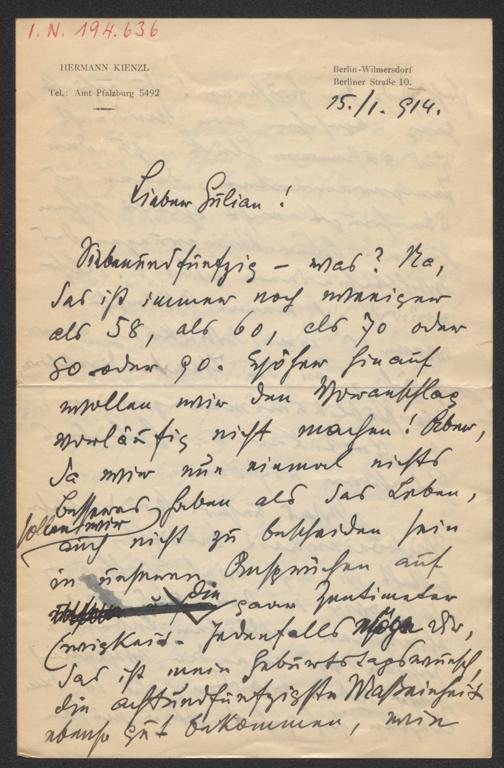 I. N. 194.636
HERMANN KIENZL
Tel.: Amt Pfalzburg 5492
Berlin-Wilmersdorf
Berliner Straße 10.
15./1. 914.
Lieber Julian!
Siebenundfünfzig – was? Na,
das ist immer noch weniger
als 58, als 60, als 70 oder
80 oder 90. Höher hinauf
wollen wir den Voranschlag
vorläufig nicht machen! Aber,
da wir nun einmal nichts
besseres haben als das Leben,
sollen wir
auch nicht zu bescheiden sein
in unseren Ansprüchen auf
die paar Zentimeter
Ewigkeit. Jedenfalls möge Dir,
das ist mein Geburtstagswunsch,
die achtundfünfzigste Maßeinheit
ebenso gut bekommen, wie